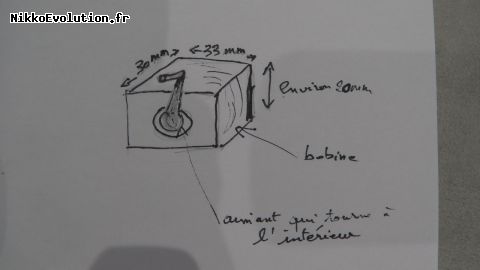 NikkoEvolution.fr
30 mm
33 mm
environ 20mm
bobine
aimant qui tourne à
l'intérieur